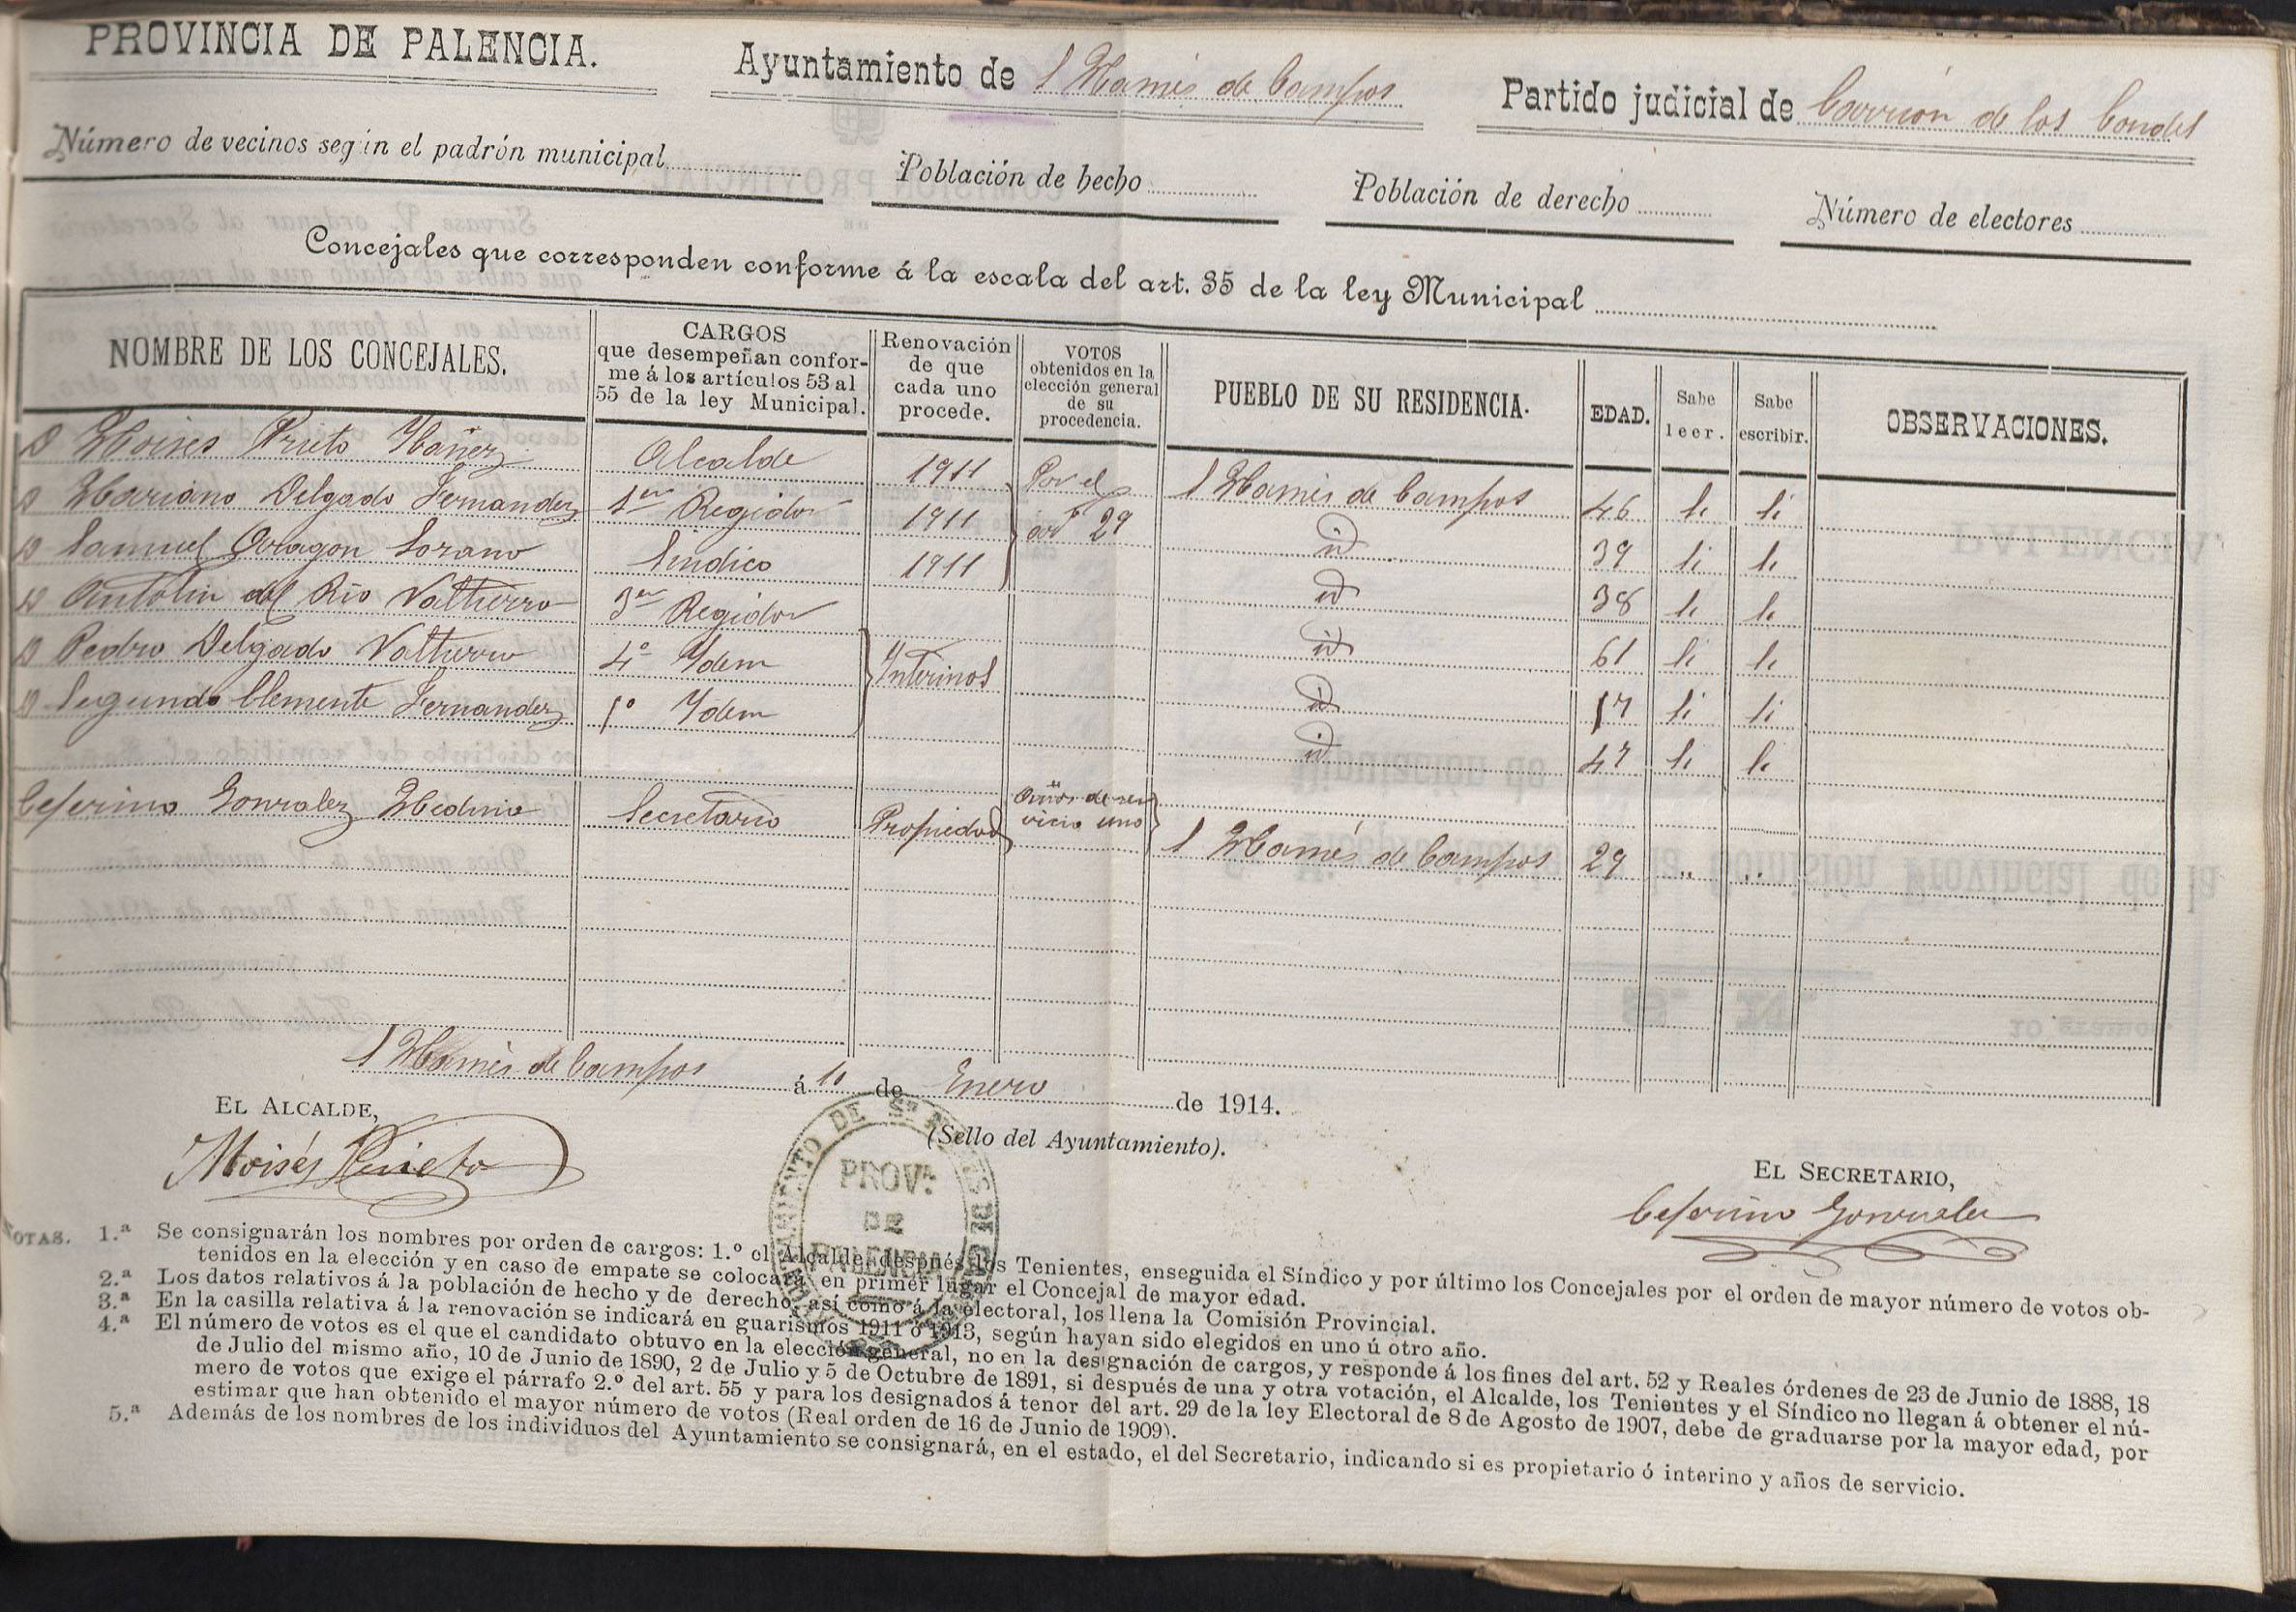 PROVINCIA DE PALENCIA.
Ayuntamiento de S Mamés de Campos
Partido judicial de Carrión de los Condes
Número de vecinos según el padrón municipal
Población de hecho
Población de derecho
Número de electores
Concejales que corresponden conforme á la escala del art. 35 de la ley Municipal
NOMBRE DE LOS CONCEJALES. CARGOS que desempeñan conforme á los artículos 53 al 55 de la ley Municipal. Renovación de que cada uno procede. VOTOS obtenidos en la elección general de su procedencia. PUEBLO DE SU RESIDENCIA. EDAD. Sabe leer. Sabe escribir. OBSERVACIONES.
D Moises Prieto Ybañez Alcalde 1911 Por el S Mamés de Campos 46 Si Si
D Mariano Delgado Fernandez 1er Regidor 1911 art 29 id 39 Si Si
D Samuel Aragon Lozano Sindico 1911 id 38 Si Si
D Antolin del Rio Valtierra 3er Regidor id 61 Si Si
D Pedro Delgado Valtierra 4º Ydem Interinos id 57 Si Si
D Segundo Clemente Fernandez 5º Ydem id 47 Si Si
Ceferino Gonzalez Medina Secretario Propiedad Años de servicio uno S Mamés de Campos 29 " "
S Mamés de Campos á 10 de Enero de 1914.
EL ALCALDE,
Moisés Prieto
(Sello del Ayuntamiento).
AYUNTAMIENTO DE Sn MAMES DE CAMPOS
PROVA DE PALENCIA
EL SECRETARIO,
Ceferino Gonzalez
NOTAS. 1.ª Se consignarán los nombres por orden de cargos: 1.º el Alcalde, después los Tenientes, enseguida el Síndico y por último los Concejales por el orden de mayor número de votos ob-
tenidos en la elección y en caso de empate se colocará en primer lugar el Concejal de mayor edad.
2.ª Los datos relativos á la población de hecho y de derecho, así como á la electoral, los llena la Comisión Provincial.
3.ª En la casilla relativa á la renovación se indicará en guarismos 1911 ó 1913, según hayan sido elegidos en uno ú otro año.
4.ª El número de votos es el que el candidato obtuvo en la elección general, no en la designación de cargos, y responde á los fines del art. 52 y Reales órdenes de 23 de Junio de 1888, 18
de Julio del mismo año, 10 de Junio de 1890, 2 de Julio y 5 de Octubre de 1891, si después de una y otra votación, el Alcalde, los Tenientes y el Síndico no llegan á obtener el nú-
mero de votos que exige el párrafo 2.º del art. 55 y para los designados á tenor del art. 29 de la ley Electoral de 8 de Agosto de 1907, debe de graduarse por la mayor edad, por
estimar que han obtenido el mayor número de votos (Real orden de 16 de Junio de 1909).
5.ª Además de los nombres de los individuos del Ayuntamiento se consignará, en el estado, el del Secretario, indicando si es propietario ó interino y años de servicio.